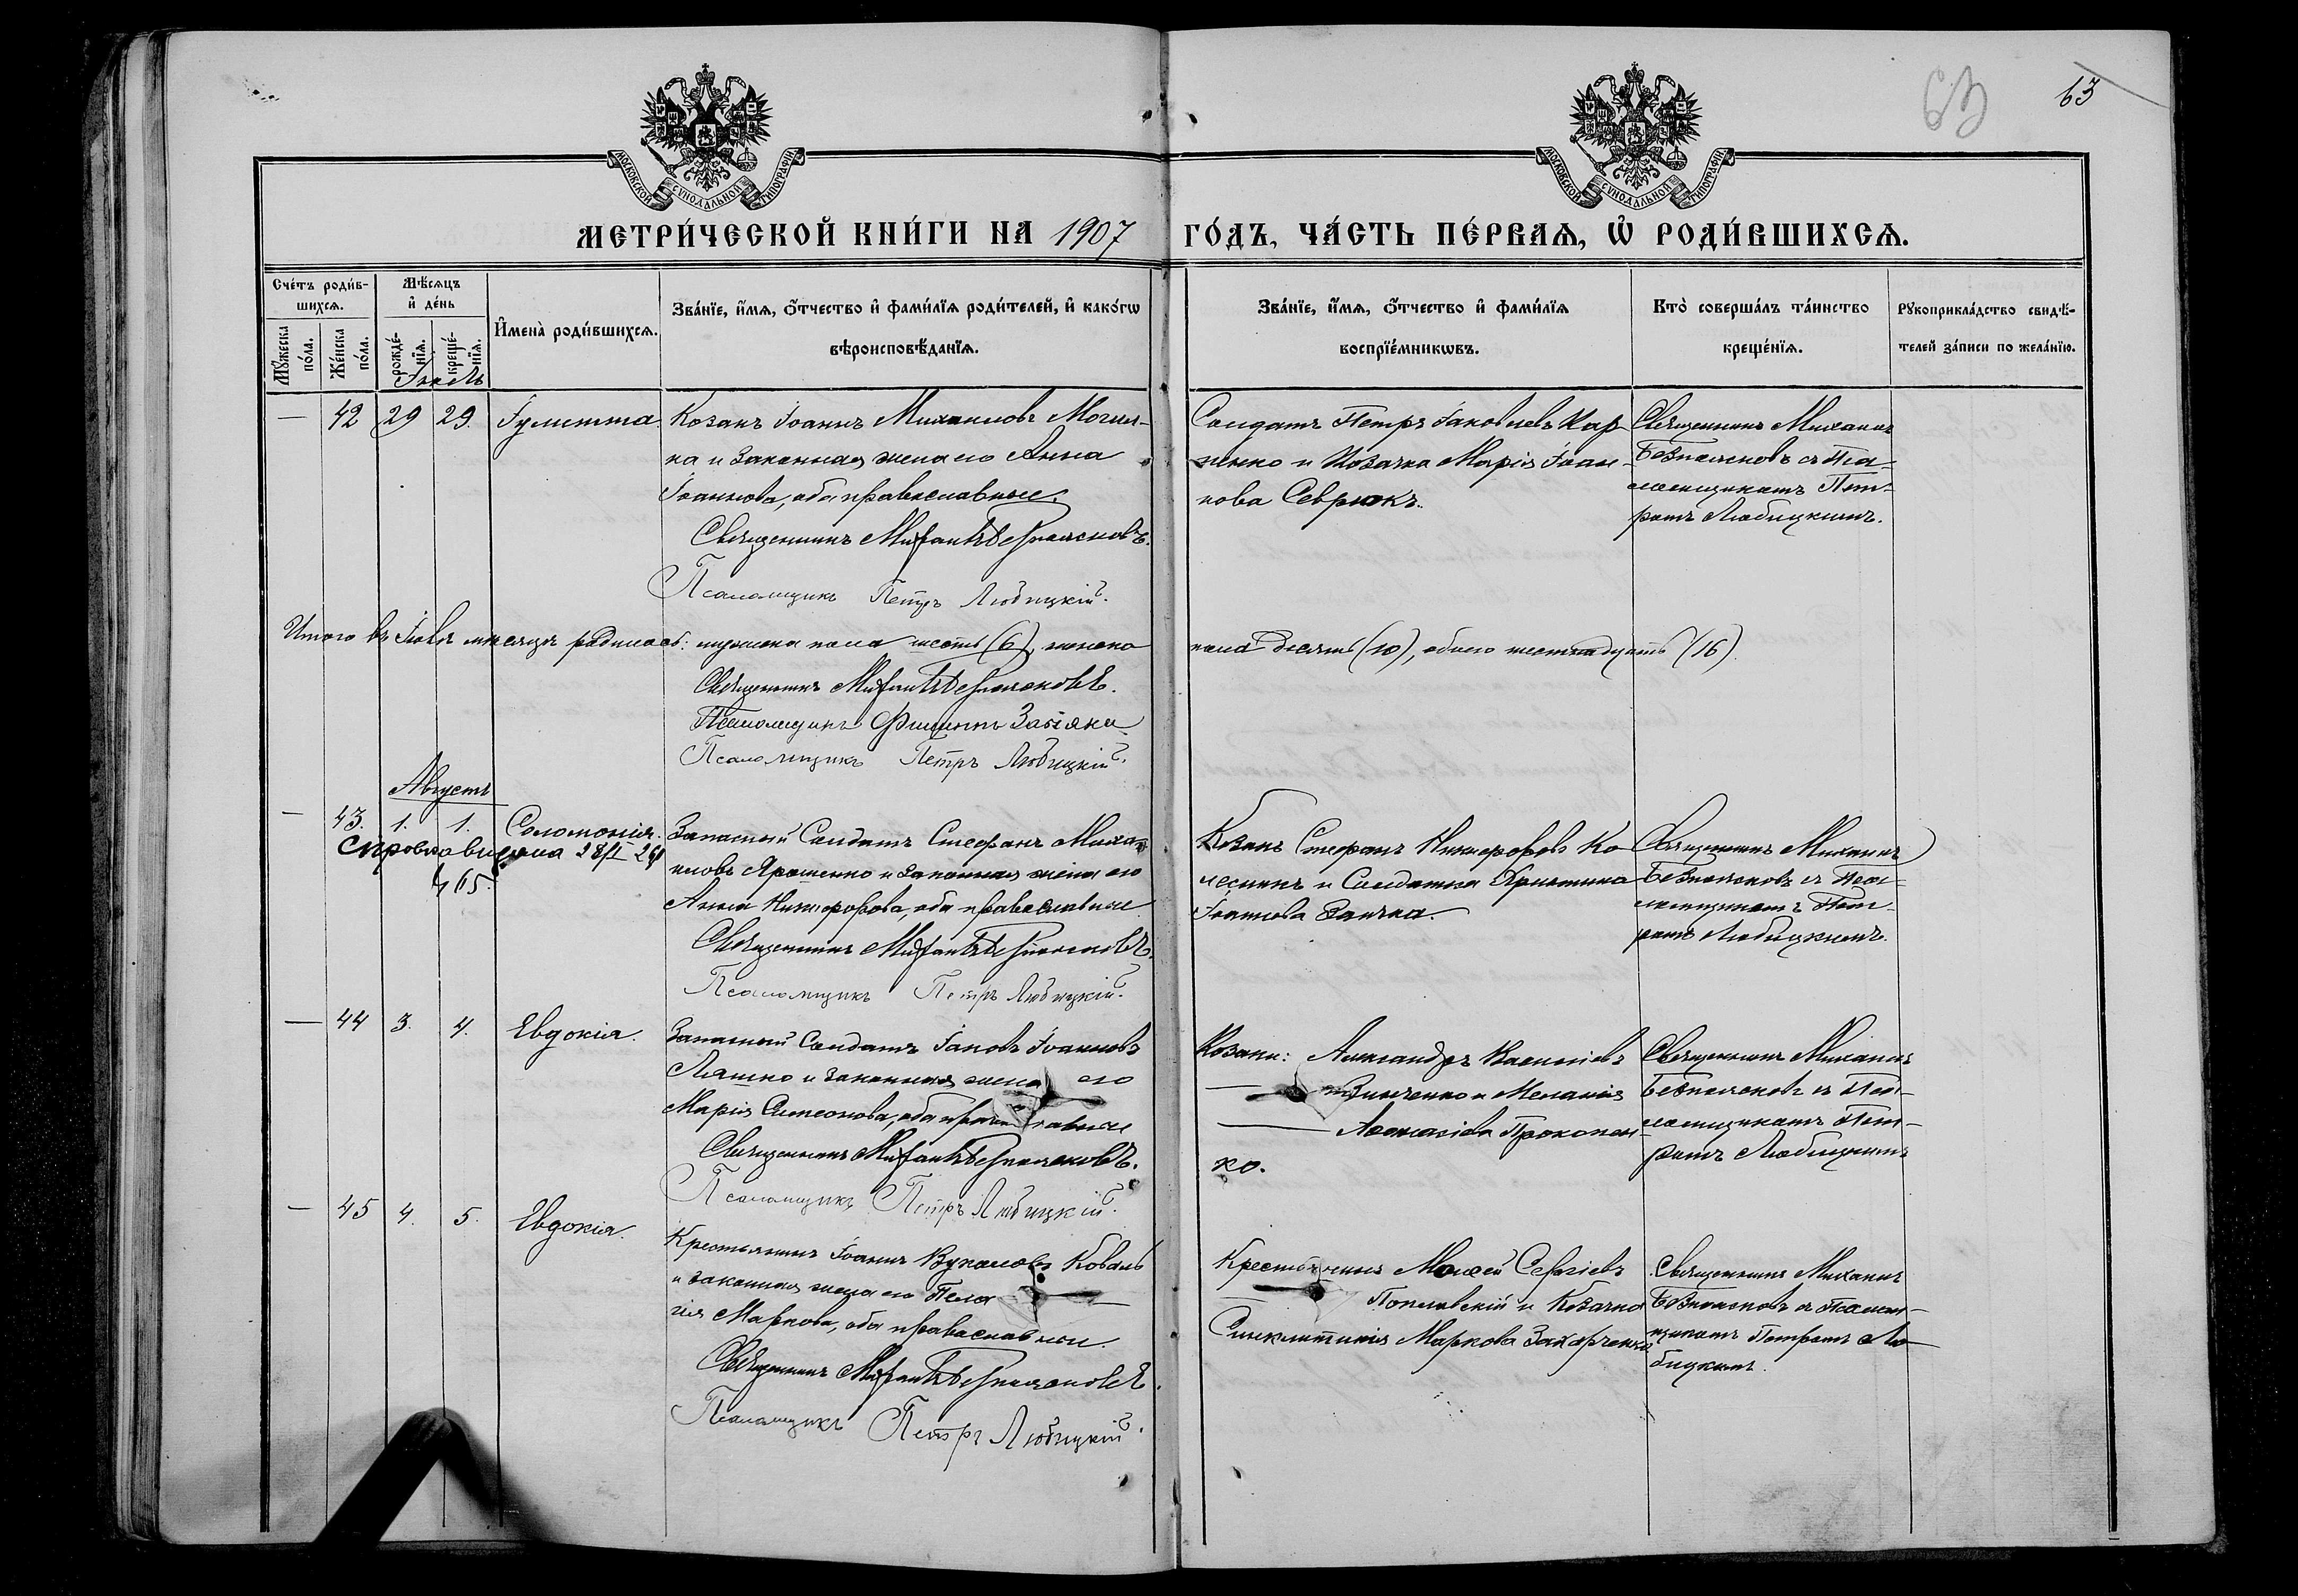 63
63
МОСКОВСКОЙ СѴНОДАЛЬНОЙ ТИПОГРАФІИ
МОСКОВСКОЙ СѴНОДАЛЬНОЙ ТИПОГРАФІИ
МЕТРИ́ЧЕСКОЙ КНИ́ГИ НА 1907 ГО́ДЪ, ЧА́СТЬ ПЕ́РВАѦ, Ѡ҆ РОДИ́ВШИХСѦ.
Сче́тъ роди́в-
шихсѧ.
Мꙋ́жеска по́ла.
Же́нска по́ла.
Мѣ́сѧцъ
и҆ де́нь
рожде́-
нїѧ.
креще́-
нїѧ.
И҆мена̀ роди́вшихсѧ.
Зва́нїе, и҆́мѧ, ѻ҆́тчество и҆ фами́лїѧ роди́телей, и҆ како́гѡ
вѣроисповѣ́данїѧ.
Зва́нїе, и҆́мѧ, ѻ҆́тчество и҆ фами́лїѧ
воспрїе́мникѡвъ.
Кто̀ соверша́лъ та́инство
креще́нїѧ.
Рꙋкоприкла́дство свидѣ́-
телей за́писи по жела́нїю.
Іюль
— 42 29 29. Іулитта
Козакъ Іоаннъ Михаиловъ Могил-
ка и законная жена его Анна
Іоаннова, оба православные.
Священникъ Михаилъ Безпалсковъ.
Псаломщикъ Петръ Любицкій.
Солдатъ Петръ Іаковлевъ Кар-
пенко и Козачка Марія Іоан-
нова Севрюкъ.
Священникъ Михаилъ
съ Пса-
ломщикомъ Пет-
ромъ Любицкимъ.
Итого въ Іюлѣ мѣсяцѣ родилось: мужеска пола шесть (6), женска
пола десять (10), обоего шестнадцать (16).
Священникъ Михаилъ
Псаломщикъ Филиппъ
Псаломщикъ Петръ Любицкій.
Августъ
— 43. 1. 1. Соломонія.
Запасный Солдатъ Стефанъ Миха-
иловъ Ярошенко и законная жена его
Анна Никифорова, оба православные
Священникъ Михаилъ
Псаломщикъ Петръ Любицкій.
Козакъ Стефанъ Никифоровъ Ко-
лесникъ и Солдатка Христина
Іоаннова Заичка.
Священникъ Михаилъ
съ Псал-
омщикомъ Пет-
ромъ Любицкимъ.
— 44 3. 4. Евдокія.
Запасный Солдатъ Іаковъ Іоанновъ
Ляшко и законная жена его
Марія Симеонова, оба православные
Священникъ Михаилъ
Псаломщикъ Петръ Любицкій.
Козаки: Александръ Василіевъ
Зинченко и Меланія
Аѳанасіева Прокопен-
ко.
Священникъ Михаилъ
съ Пса-
ломщикомъ Пет-
ромъ Любицкимъ
— 45 4. 5. Евдокія.
Крестьянинъ Іоаннъ Вуколовъ Коваль
и законная жена его Пела-
гія Маркова, оба православные.
Священникъ Михаилъ
Псаломщикъ Петръ Любицкій.
Крестьянинъ Моисей Сергіевъ
и Козачка
Синклитикія Маркова Захарченко
Священникъ Михаилъ
съ Псалом-
щикомъ Петромъ Лю-
бицкимъ.